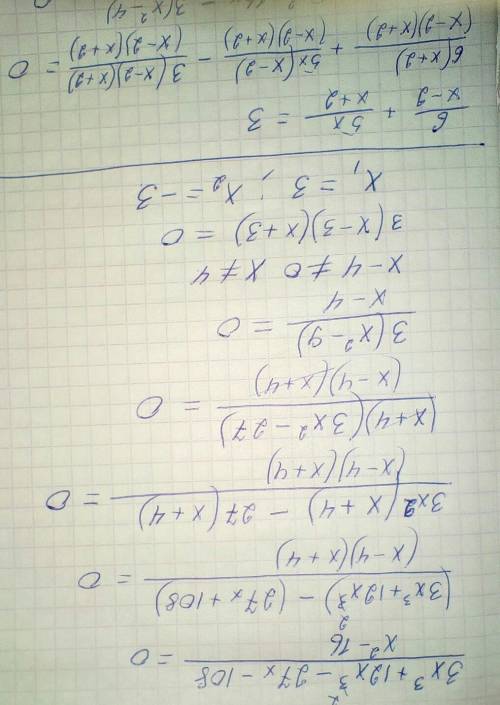 3x³ + 12x² - 27x - 108 / x² - 16 = 0
(3x³ + 12x²) - (27x + 108) / (x - 4)(x + 4) = 0
3x2(x + 4) - 27(x + 4) / (x - 4)(x + 4) = 0
(x + 4)(3x² - 27) / (x - 4)(x + 4) = 0
3(x² - 9) / x - 4 = 0
x - 4 ≠ 0 x ≠ 4
3(x - 3)(x + 3) = 0
x₁ = 3 ; x₂ = -3
6 / x - 2 + 5x / x + 2 = 3
6(x + 2) / (x - 2)(x + 2) + 5x(x - 2) / (x - 2)(x + 2) - 3(x - 2)(x + 2) / (x - 2)(x + 2) = 0
- 3(x² - 4)